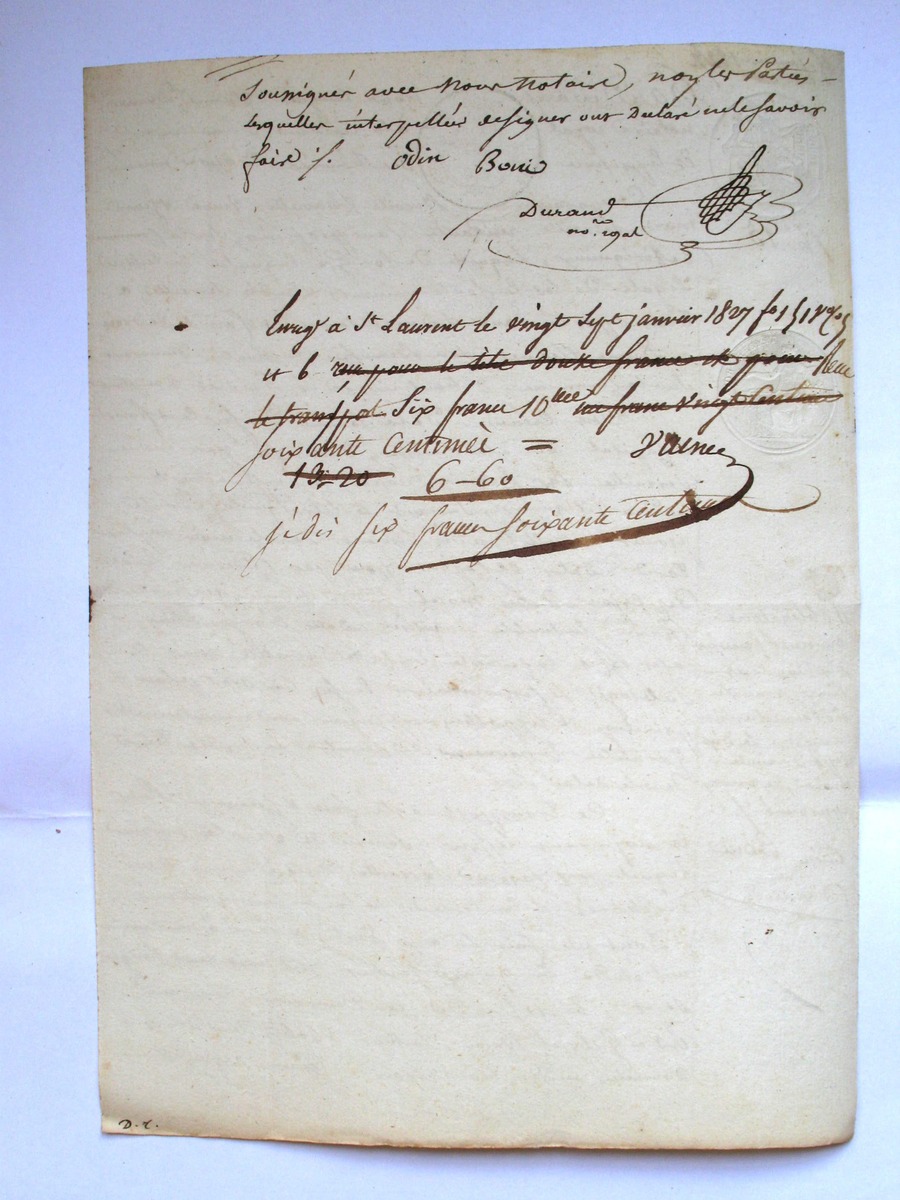 Soussignés avec Nous notaire, non les Parties
lesquelles interpellées de signer ont Declaré ne le savoir
faire /. odin Boui
Durand
no.re royal
Enregé à St Laurent le vingt Sept janvier 1827 fo 151 Vo
et 6 douze francs
le transpot Six francs 10me un franc vingt Centimes
soixante Centimes =
13-20 6-60
je dis six francs soixante Centimes
D. r.